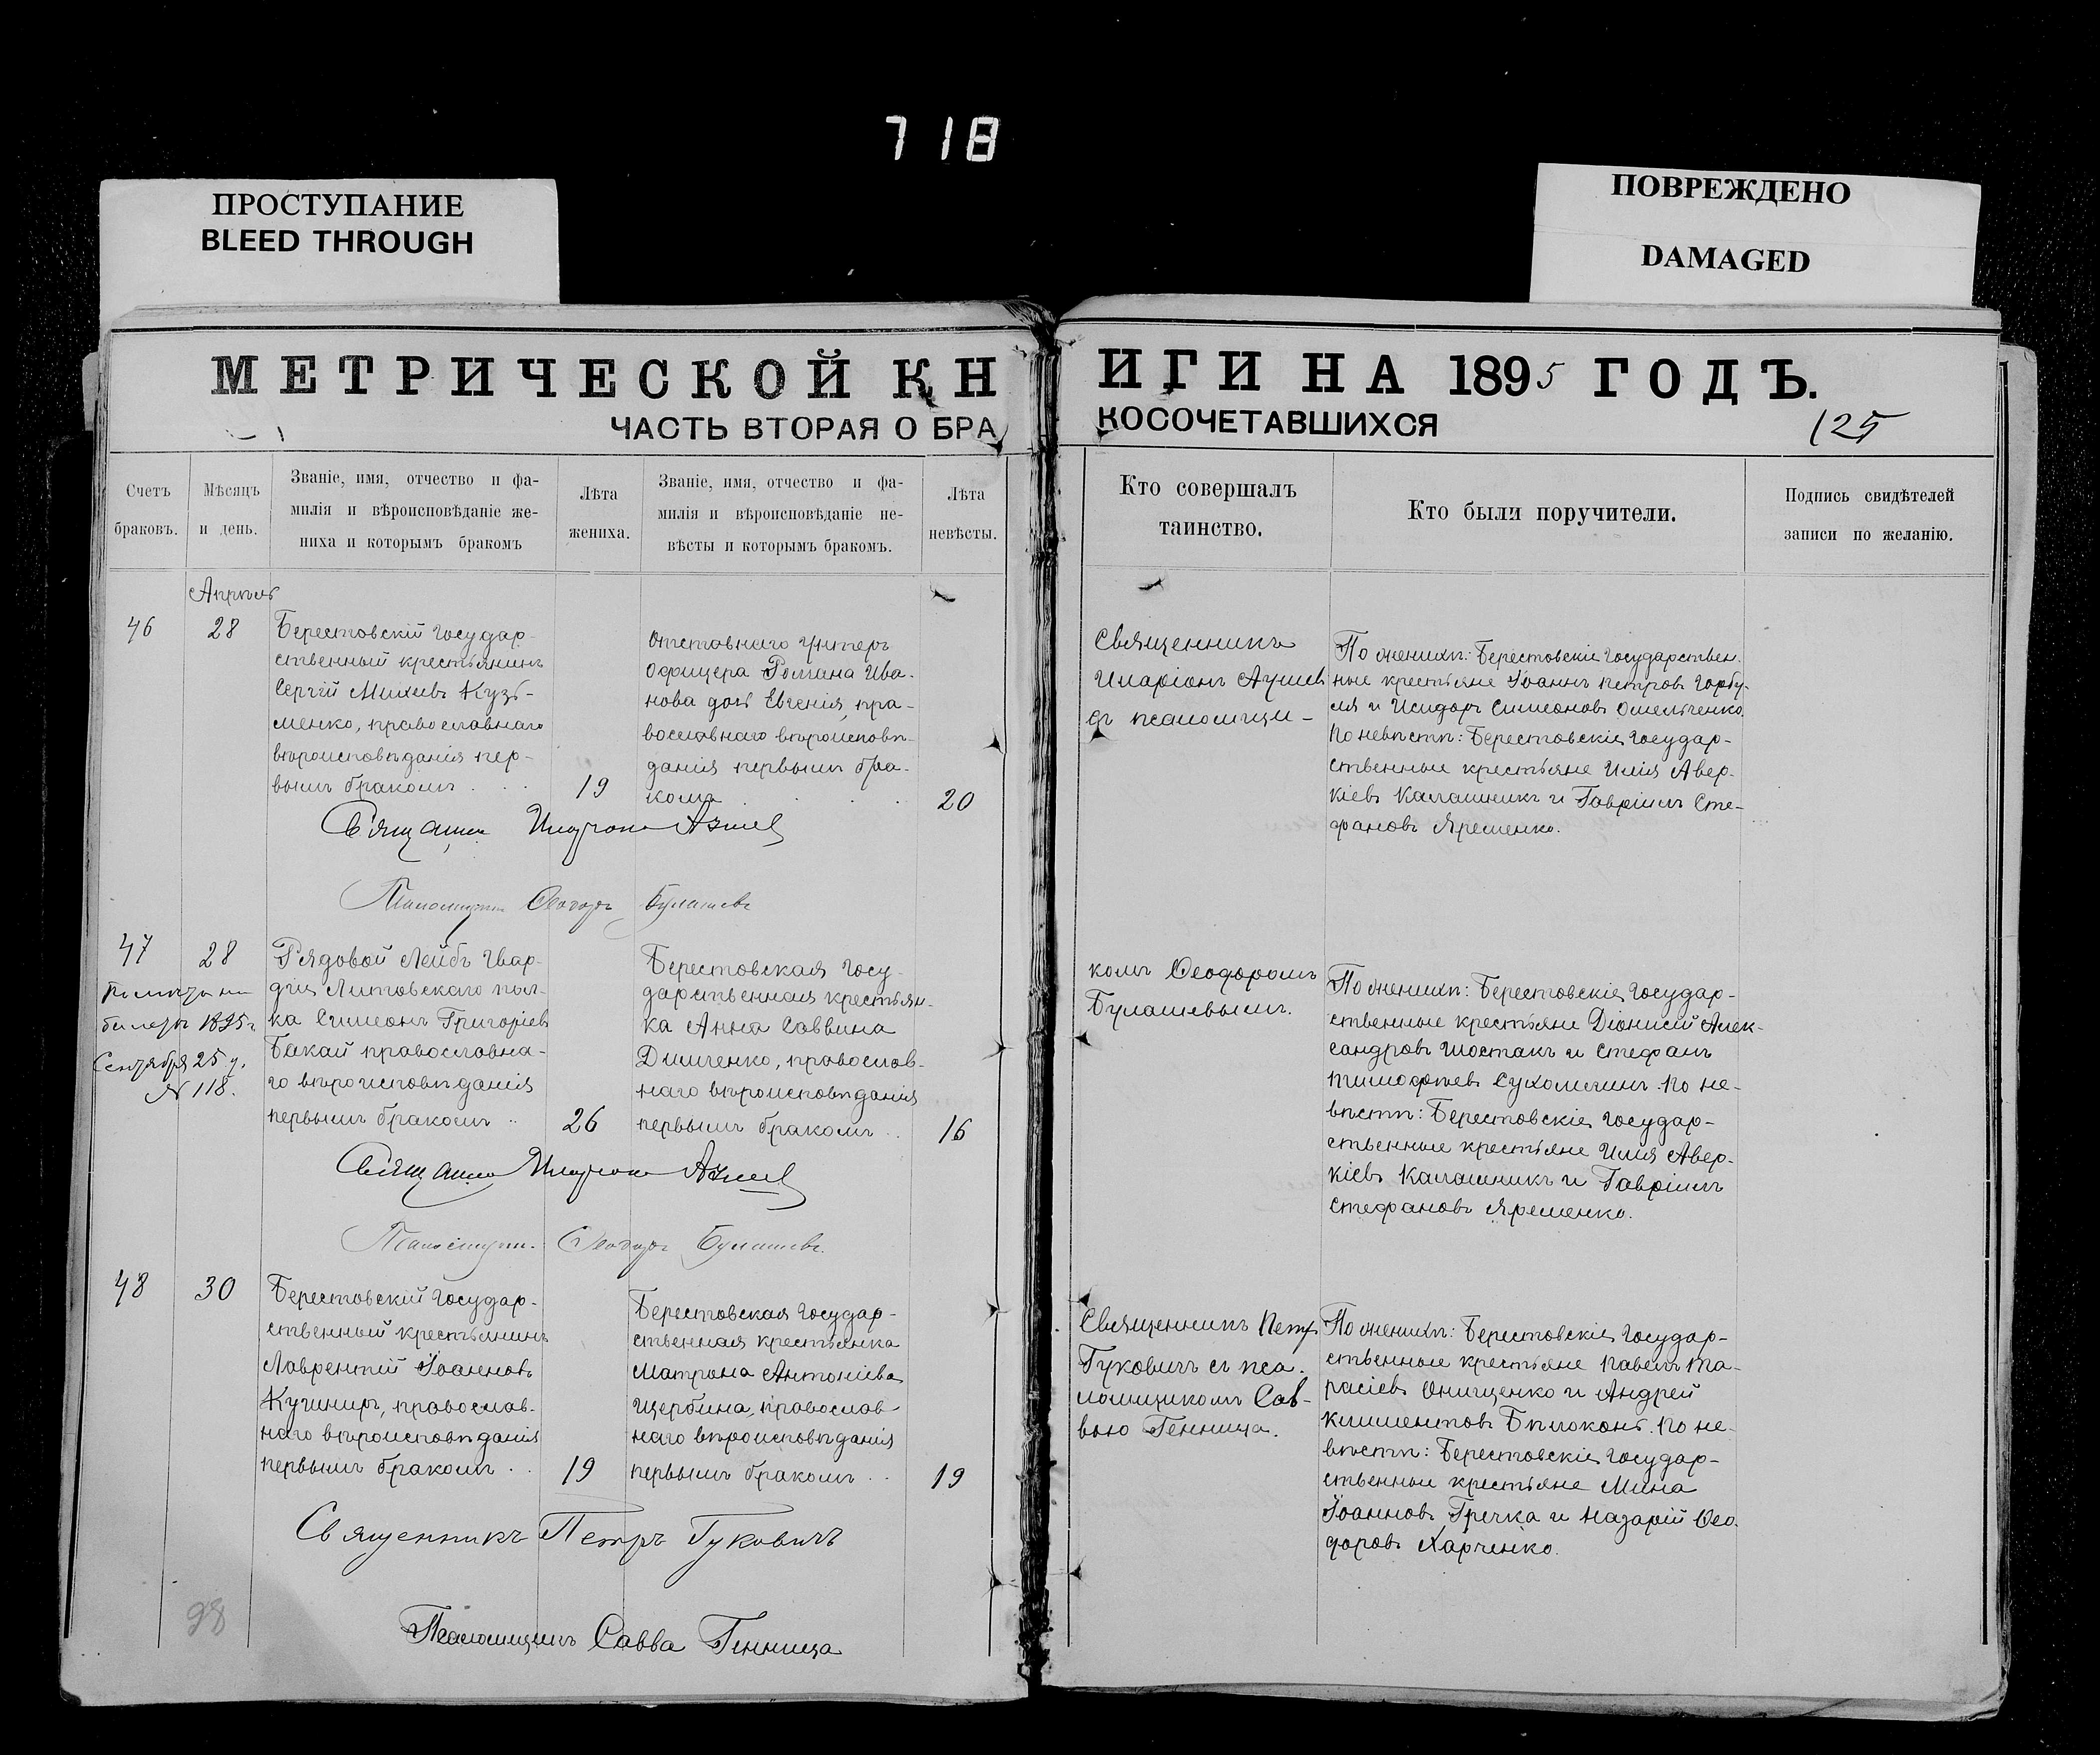 718
ПРОСТУПАНИЕ
BLEED THROUGH
ПОВРЕЖДЕНО
DAMAGED
МЕТРИЧЕСКОЙ КН
ИГИ НА 1895 ГОДЪ.
ЧАСТЬ ВТОРАЯ О БРА
КОСОЧЕТАВШИХСЯ
125
Счетъ
браковъ.
Мѣсяцъ
и день.
Званіе, имя, отчество и фа-
милія и вѣроисповѣданіе же-
ниха и которымъ бракомъ
Лѣта
жениха.
Званіе, имя, отчество и фа-
милія и вѣроисповѣданіе не-
вѣсты и которымъ бракомъ.
Лѣта
невѣсты.
Кто совершалъ
таинство.
Кто были поручители.
Подпись свидѣтелей
записи по желанію.
Апрѣль
46
28
Берестовскій Государ-
ственный крестьянинъ
Сергій Михеевъ Кузь-
менко, православнаго
вѣроисповѣданія пер-
вымъ бракомъ . . .
19
Отставнаго Унтеръ
Офицера Романа Ива-
нова дочь Евгенія, пра-
вославнаго вѣроисповѣ-
данія первымъ бра-
комъ . . .
20
Священникъ
Иларіонъ
съ псаломщи-
По женихѣ: Берестовскіе Государствен-
ные крестьяне Іоаннъ Петровъ Горбу-
ля и Исидоръ Симеоновъ Омельченко.
По невѣстѣ: Берестовскіе Государ-
ственные крестьяне Илія Авер-
кіевъ Калашникъ и Гавріилъ Сте-
фановъ Яременко.
Псаломщикъ Ѳеодоръ Булашевъ
47
28
билету 1895 г.
Сентября 25 д.
№ 118.
Рядовой Лейбъ Гвар-
діи Литовскаго пол-
ка Симеонъ Григоріевъ
Бакай православна-
го вѣроисповѣданія
первымъ бракомъ ..
26
Берестовская Госу-
дарственная крестьян-
ка Анна Саввина
Дишченко, православ-
наго вѣроисповѣданія
первымъ бракомъ ..
16
комъ Ѳеодоромъ
Булашевымъ.
По женихѣ: Берестовскіе Государ-
ственные крестьяне Діонисій Алек-
сандровъ Шостакъ и Стефанъ
Тимофѣевъ Сухомлинъ. По не-
вѣстѣ: Берестовскіе Государ-
ственные крестьяне Илія Авер-
кіевъ Калашникъ и Гавріилъ
Стефановъ Яременко.
Псаломщикъ Ѳеодоръ Булашевъ.
48
30
Берестовскій Государ-
ственный крестьянинъ
Лаврентій Іоанновъ
Кушниръ, православ-
наго вѣроисповѣданія
первымъ бракомъ . .
19
Берестовская Государ-
ственная крестьянка
Матрона Антоніева
Щербина, православ-
наго вѣроисповѣданія
первымъ бракомъ . .
19
Священникъ Петръ
Гуковичъ съ пса-
ломщикомъ Сав-
вою Генница.
По женихѣ: Берестовскіе Государ-
ственные крестьяне Павелъ Та-
расіевъ Онищенко и Андрей
Климентовъ Бѣлоконь. По не-
вѣстѣ: Берестовскіе Государ-
ственные крестьяне Мина
Іоанновъ Гречка и Назарій Ѳео-
доровъ Харченко.
Священникъ Петръ Гуковичъ
Псаломщикъ Савва Генница
98